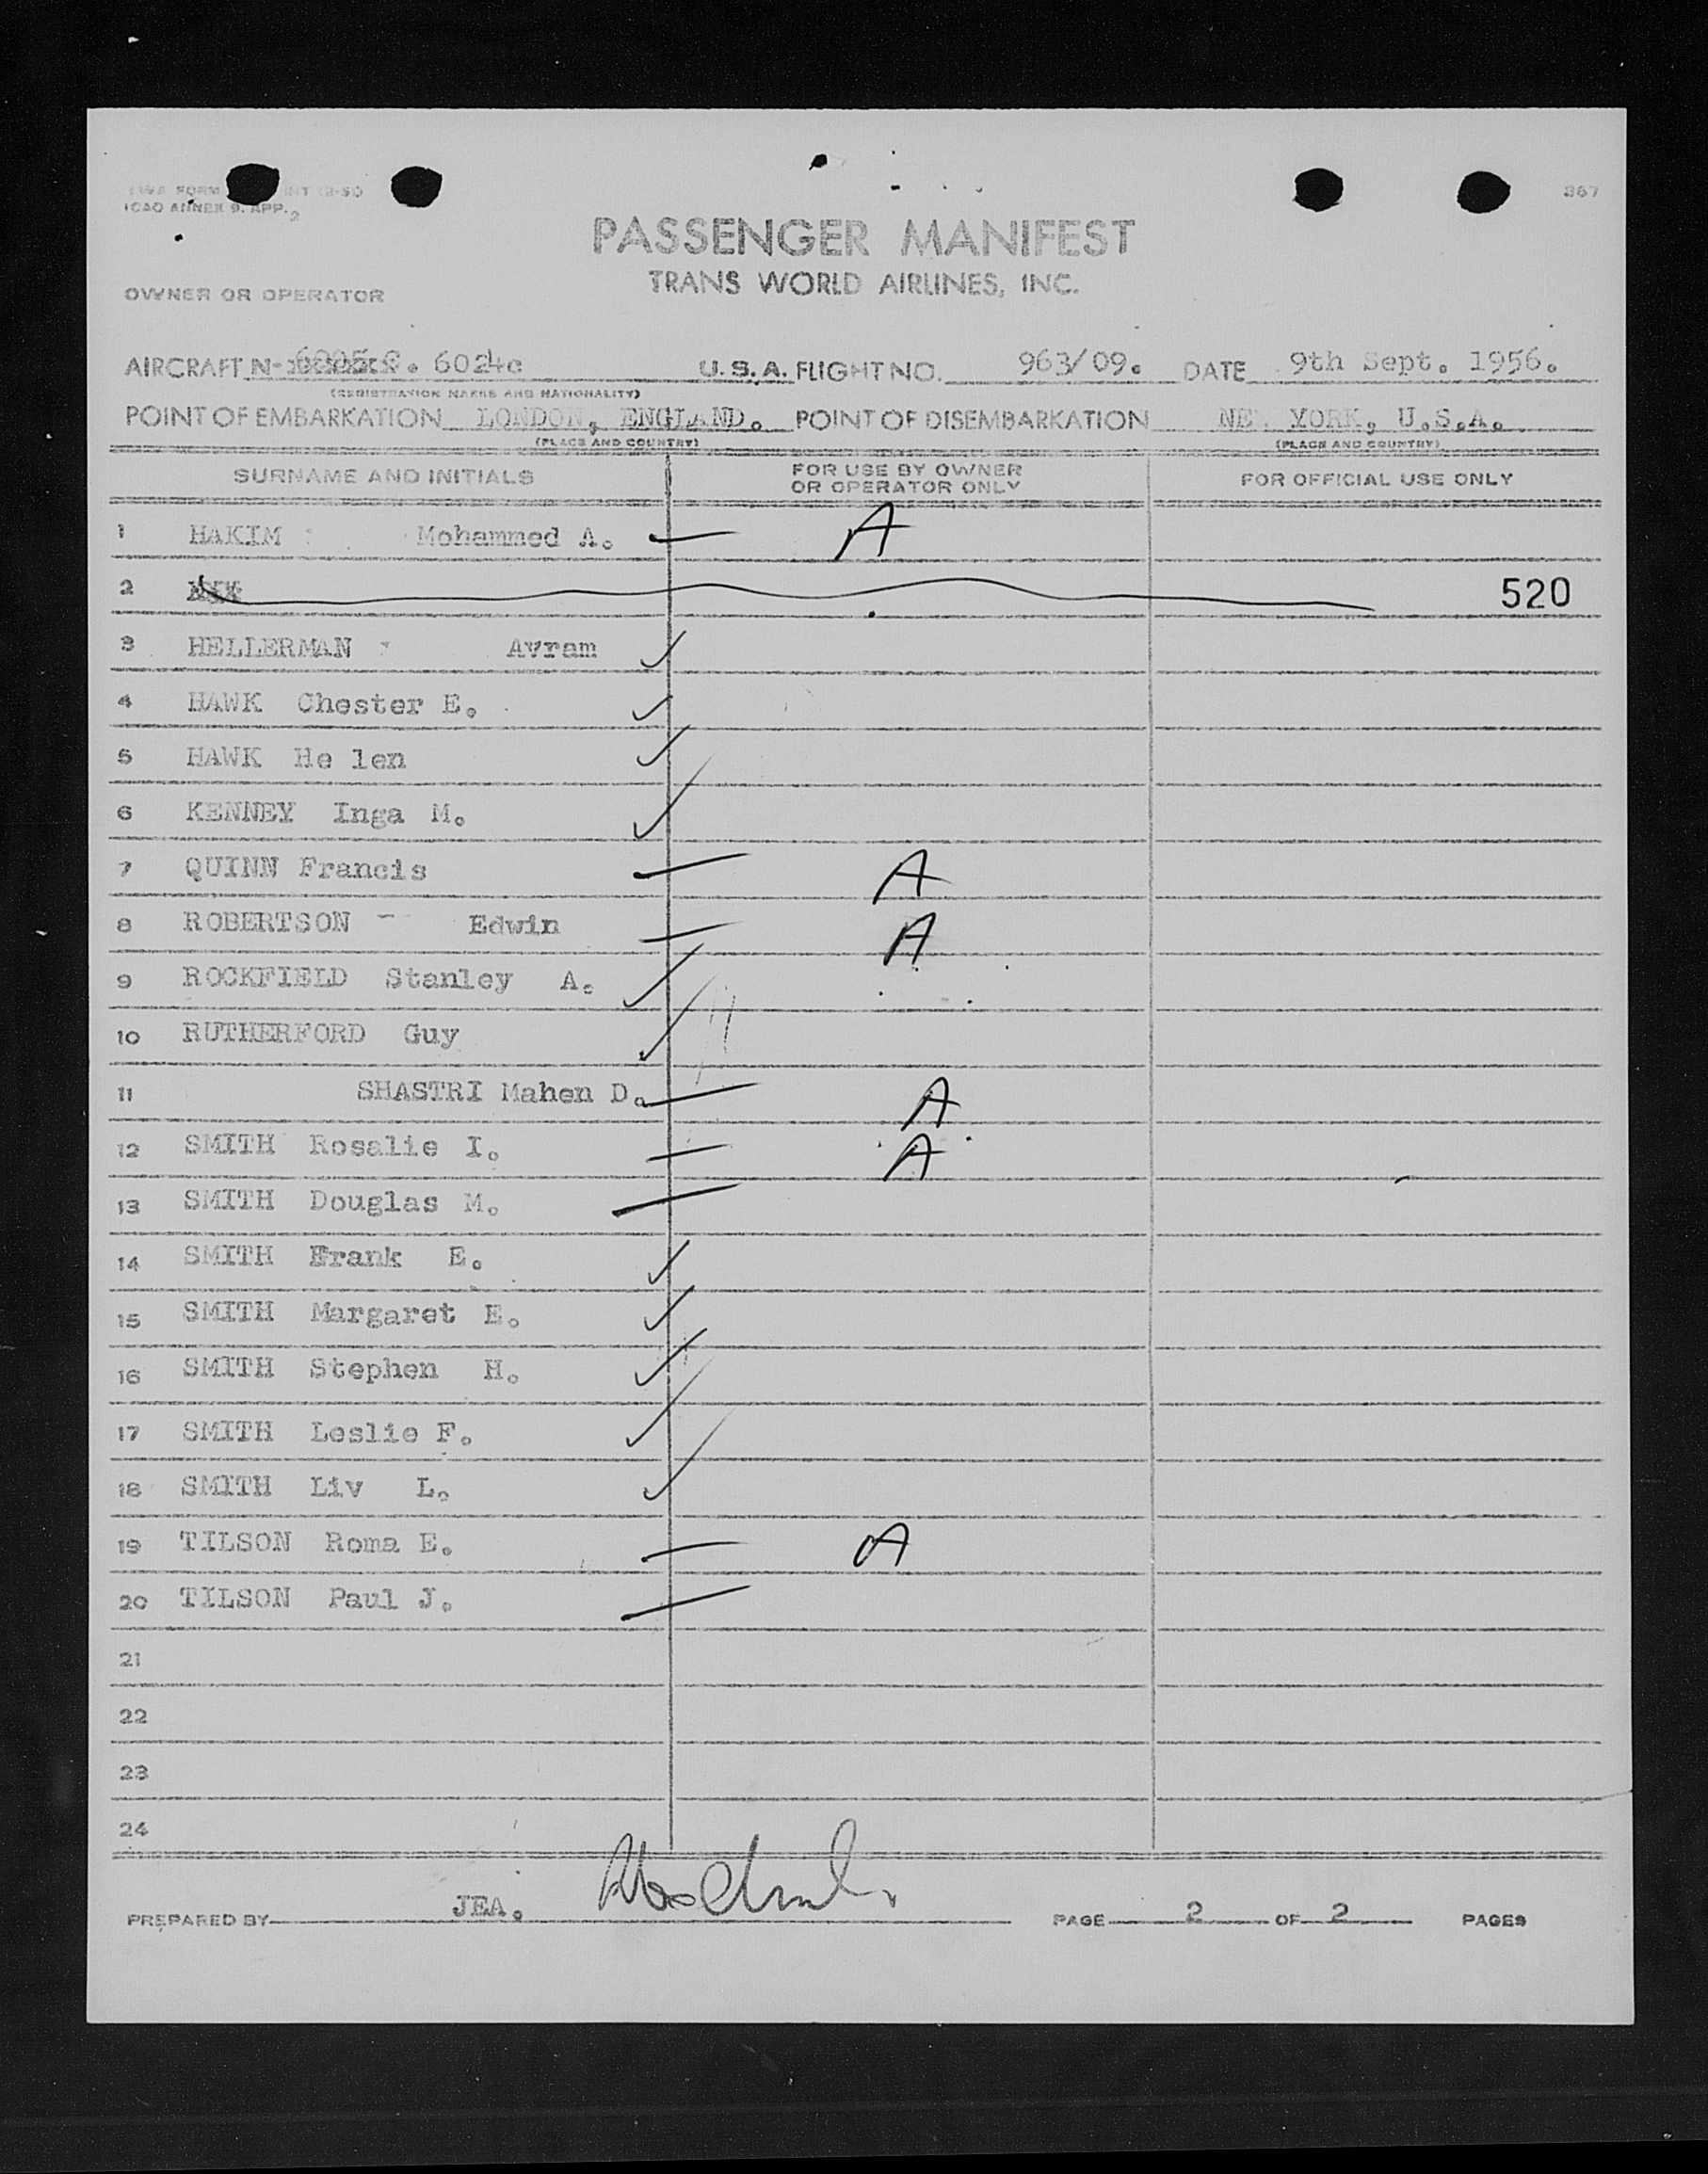 TWA FORM INT (2-51)
ICAO ANNEX 9. APP. 2
367
PASSENGER MANIFEST
TRANS WORLD AIRLINES, INC.
OWNER OR OPERATOR
AIRCRAFT N- 6024c U.S.A. FLIGHT NO. 963/09. DATE 9th Sept. 1956.
(REGISTRATION MARKS AND NATIONALITY)
POINT OF EMBARKATION LONDON, ENGLAND. POINT OF DISEMBARKATION NE YORK, U.S.A.
(PLACE AND COUNTRY) (PLACE AND COUNTRY)
SURNAME AND INITIALS FOR USE BY OWNER OR OPERATOR ONLY FOR OFFICIAL USE ONLY
1 HAKIM Mohammed A. — A
2 520
3 HELLERMAN Avram ✓
4 HAWK Chester E. ✓
5 HAWK He len ✓
6 KENNEY Inga M. ✓
7 QUINN Francis — A
8 ROBERTSON - Edwin — A
9 ROCKFIELD Stanley A. ✓
10 RUTHERFORD Guy ✓
11 SHASTRI Mahen D. — A
12 SMITH Rosalie I. — A
13 SMITH Douglas M. —
14 SMITH Frank E. ✓
15 SMITH Margaret E. ✓
16 SMITH Stephen H. ✓
17 SMITH Leslie F. ✓
18 SMITH Liv L. ✓
19 TILSON Roma E. — A
20 TILSON Paul J. —
21
22
23
24
PREPARED BY JEA. PAGE 2 OF 2 PAGES